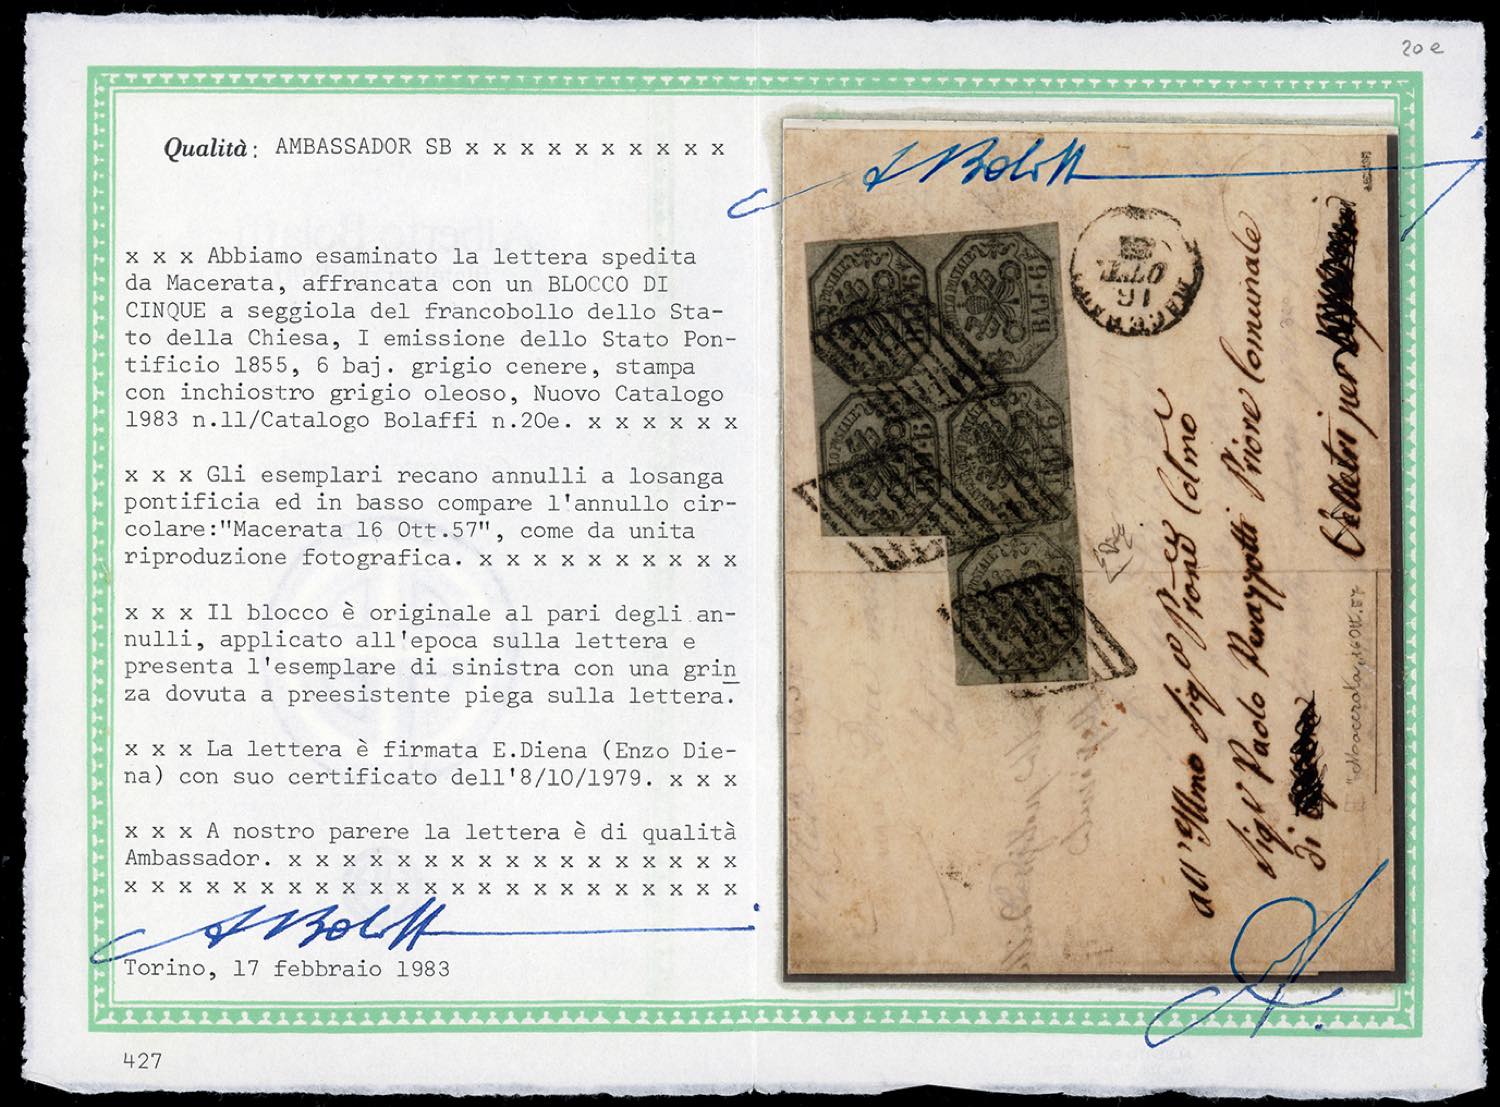 20 e
Qualità: AMBASSADOR SB x x x x x x x x x x
x x x Abbiamo esaminato la lettera spedita
da Macerata, affrancata con un BLOCCO DI
CINQUE a seggiola del francobollo dello Sta-
to della Chiesa, I emissione dello Stato Pon-
tificio 1855, 6 baj. grigio cenere, stampa
con inchiostro grigio oleoso, Nuovo Catalogo
1983 n.11/Catalogo Bolaffi n.20e. x x x x x x
x x x Gli esemplari recano annulli a losanga
pontificia ed in basso compare l'annullo cir-
colare:"Macerata 16 Ott.57", come da unita
riproduzione fotografica. x x x x x x x x x x
x x x Il blocco è originale al pari degli an-
nulli, applicato all'epoca sulla lettera e
presenta l'esemplare di sinistra con una grin
za dovuta a preesistente piega sulla lettera.
x x x La lettera è firmata E.Diena (Enzo Die-
na) con suo certificato dell'8/10/1979. x x x
x x x A nostro parere la lettera è di qualità
Ambassador. x x x x x x x x x x x x x x x x x
x x x x x x x x x x x x x x x x x x x x x x x
A Bolaffi
Torino, 17 febbraio 1983
427
A Bolaffi
BOLLO POSTALE
6 BAJ
BOLLO POSTALE
6 BAJ
BOLLO POSTALE
6 BAJ
BOLLO POSTALE
6 BAJ
BOLLO POSTALE
MACERATA
16
OTT.
all' Illmo Sig
Sig Paolo Priore Comunale
di
Velletri per
"Macerata, 16 Ott. 57